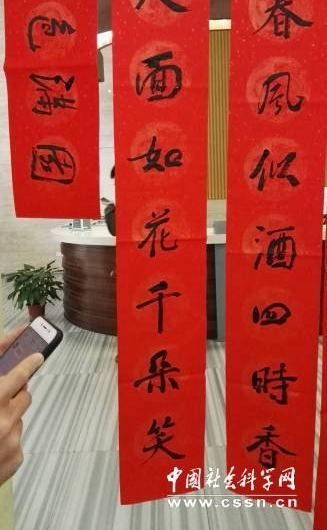 春風似酒四時香
人面如花千朵笑
色满园
中国社会科学网
www.cssn.cn